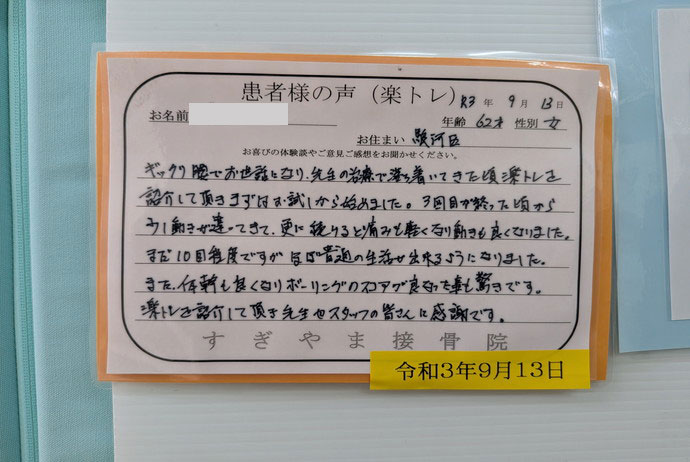 患者様の声（楽トレ） R3 年 9 月 13 日
お名前 年齢 62才 性別 女
お住まい 駿河区
お喜びの体験談やご意見ご感想をお聞かせください。
ギックリ腰でお世話になり、先生の治療で落ち着いてきた頃楽トレを
紹介して頂きまずはお試しから始めました。3回目が終った頃から
動きが違ってきて、更に続けると痛みも軽くなり動きも良くなりました。
まだ10回程度ですがほぼ普通の生活が出来るようになりました。
また、体幹も良くなりボーリングのスコアが良なった事も驚きです。
楽トレを紹介して頂き先生やスタッフの皆さんに感謝です。
すぎやま接骨院
令和3年9月13日